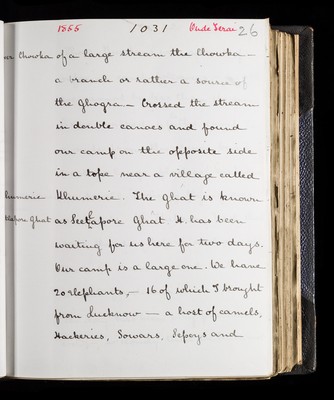 1855 1031 Oude Terai 26
Chowka of a large stream the Chowka —
a branch or rather a source of
the Ghogra — Crossed the stream
in double canoes and found
our camp on the opposite side
in a tope near a village called
Khumerie. The Ghat is known
as Seetapore Ghat H. has been
waiting for us here for two days.
Our camp is a large one. We have
20 elephants, — 16 of which I brought
from Lucknow — a host of camels,
Hackeries, Sowars, Sepoys and